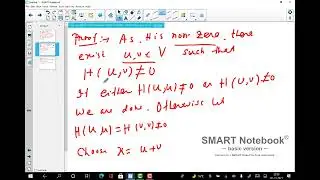 Proof:- As H is non zero, there
exist u, v ∈ V such that
H(u, v) ≠ 0
If either H(u, u) ≠ 0 or H(v, v) ≠ 0
we are done. Otherwise let
H(u, u) = H(v, v) ≠ 0
SMART Notebook®
— basic version —
Choose x = u + v